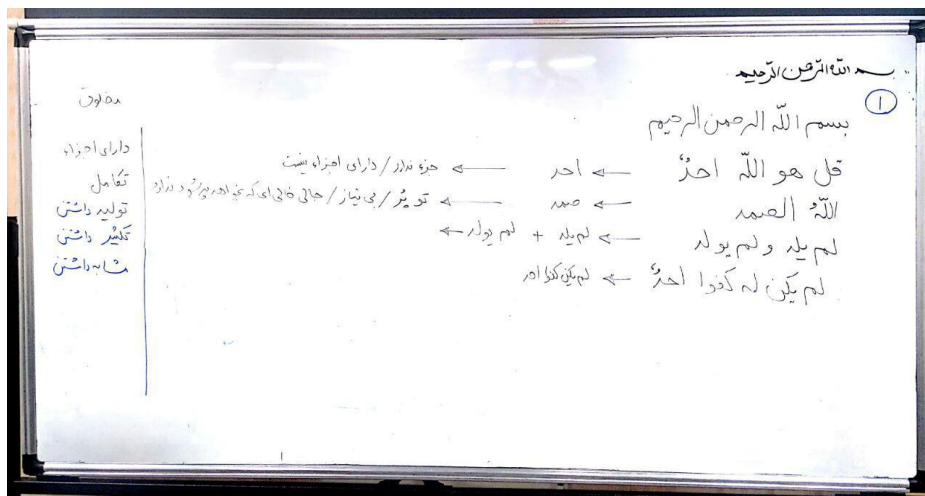 بسم الله الرحمن الرحیم
۱
بسم اللّه الرحمن الرحیم
قل هو اللّه احدٌ ← احد ← جزء ندارد / دارای اجزاء نیست
اللّهُ الصمد ← صمد ← تو پُر / بی نیاز / جای خالی ای که بخواهد پر شود ندارد
لم یلد و لم یولد ← لم یلد + لم یولد ←
لم یکن له کفوا احدٌ ← لم یکن کفوا احد
مخلوق
دارای اجزاء
تکامل
تولید داشتن
تکثیر داشتن
مشابه داشتن